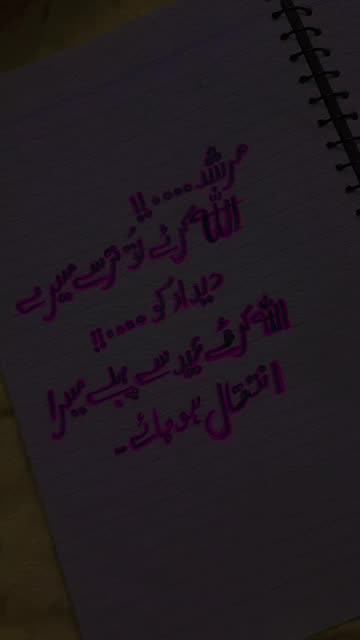 مرشد....!!
اللہ کرے تُو ترسے میرے
دیدار کو....!!
اللہ کرے عید سے پہلے میرا
انتقال ہو جائے۔